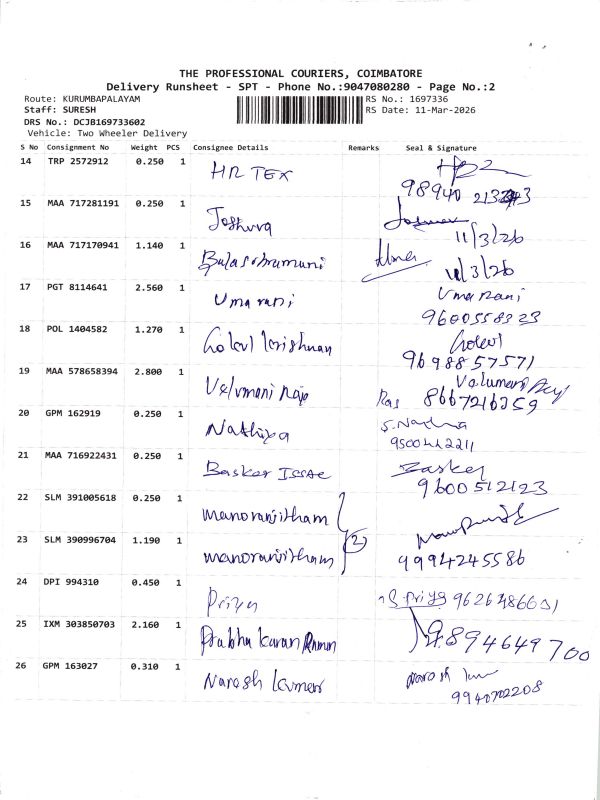 THE PROFESSIONAL COURIERS, COIMBATORE
Delivery Runsheet - SPT - Phone No.:9047080280 - Page No.:2
Route: KURUMBAPALAYAM RS No.: 1697336
Staff: SURESH RS Date: 11-Mar-2026
DRS No.: DCJB169733602
Vehicle: Two Wheeler Delivery
S No Consignment No Weight PCS Consignee Details Remarks Seal & Signature
14 TRP 2572912 0.250 1 HR TEX
98940
15 MAA 717281191 0.250 1 Joshuva
11/3/26
16 MAA 717170941 1.140 1 Balasubramani
11/3/26
17 PGT 8114641 2.560 1 Umarani Umarani
9600558323
18 POL 1404582 1.270 1 Gokul krishnan Gokul
9698857571
19 MAA 578658394 2.800 1 Velumani Raja Velumani
8667216359
20 GPM 162919 0.250 1 Nathiya
9500442211
21 MAA 716922431 0.250 1 Basker Issac Basker
9600512123
22 SLM 391005618 0.250 1 manoranjitham
(2)
23 SLM 390996704 1.190 1 manoranjitham 9994245586
24 DPI 994310 0.450 1 Priya S. Priya
25 IXM 303850703 2.160 1 Prabhakaran 9894649700
26 GPM 163027 0.310 1 Naresh kumar
9940702208